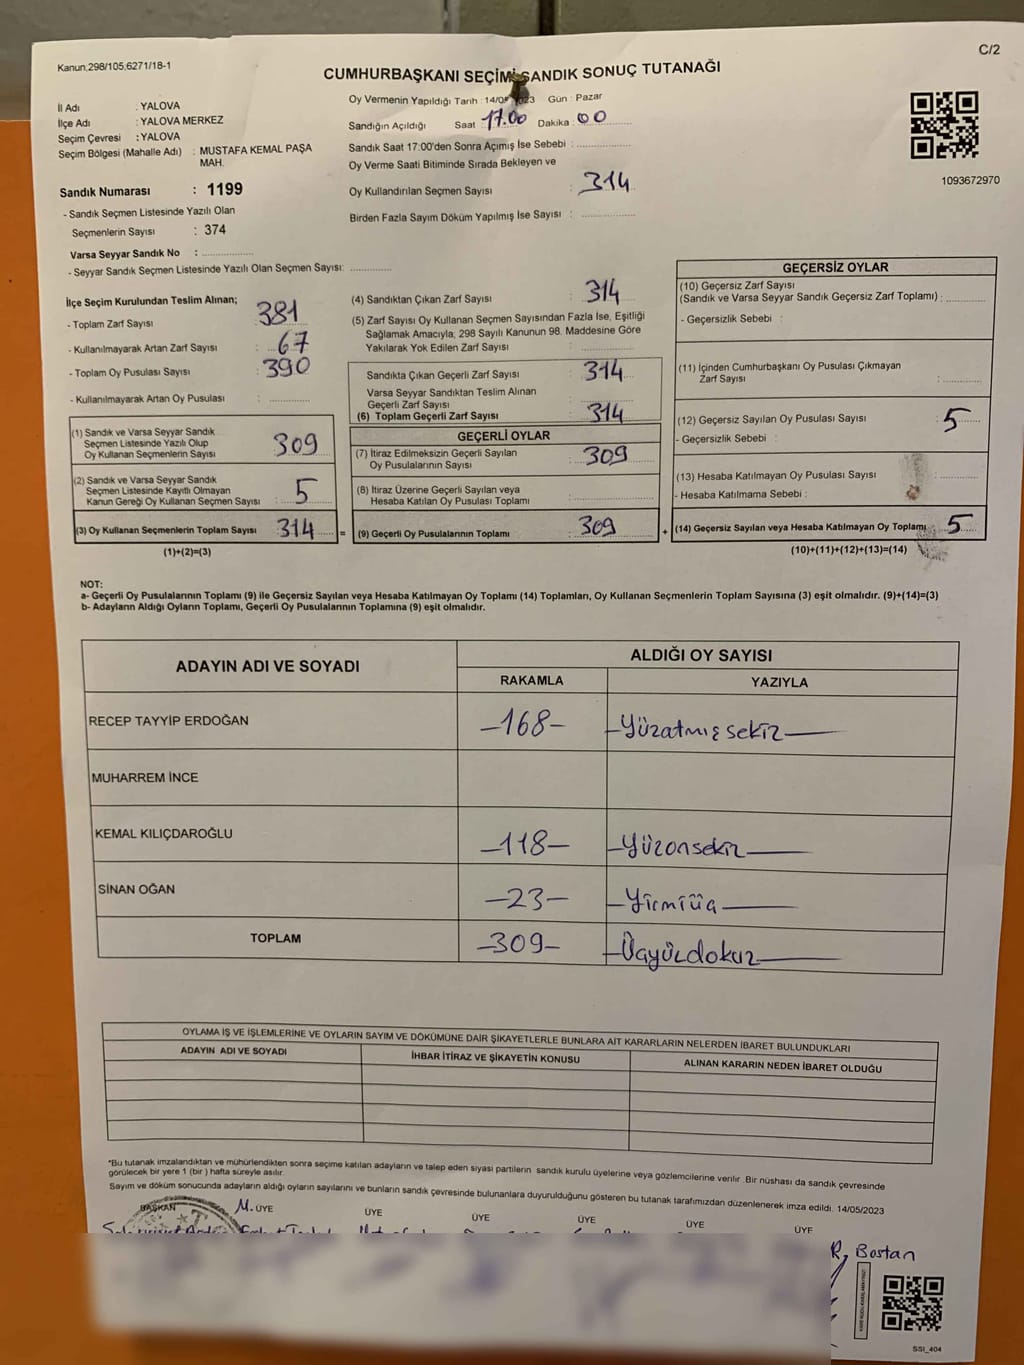 C/2
Kanun;298/105,6271/18-1
CUMHURBAŞKANI SEÇİMİ SANDIK SONUÇ TUTANAĞI
İl Adı : YALOVA
İlçe Adı : YALOVA MERKEZ
Seçim Çevresi : YALOVA
Seçim Bölgesi (Mahalle Adı) : MUSTAFA KEMAL PAŞA
MAH.
Sandık Numarası : 1199
- Sandık Seçmen Listesinde Yazılı Olan
Seçmenlerin Sayısı : 374
Varsa Seyyar Sandık No :
- Seyyar Sandık Seçmen Listesinde Yazılı Olan Seçmen Sayısı:
Oy Vermenin Yapıldığı Tarih : 14/05/2023 Gün : Pazar
Sandığın Açıldığı Saat : 17.00 Dakika : 00
Sandık Saat 17:00'den Sonra Açımış İse Sebebi :
Oy Verme Saati Bitiminde Sırada Bekleyen ve
Oy Kullandırılan Seçmen Sayısı : 314
Birden Fazla Sayım Döküm Yapılmış İse Sayısı :
1093672970
İlçe Seçim Kurulundan Teslim Alınan;
- Toplam Zarf Sayısı : 381
- Kullanılmayarak Artan Zarf Sayısı : 67
- Toplam Oy Pusulası Sayısı : 390
- Kullanılmayarak Artan Oy Pusulası :
(1) Sandık ve Varsa Seyyar Sandık
Seçmen Listesinde Yazılı Olup
Oy Kullanan Seçmenlerin Sayısı : 309
(2) Sandık ve Varsa Seyyar Sandık
Seçmen Listesinde Kayıtlı Olmayan
Kanun Gereği Oy Kullanan Seçmen Sayısı : 5
(3) Oy Kullanan Seçmenlerin Toplam Sayısı : 314 =
(1)+(2)=(3)
(4) Sandıktan Çıkan Zarf Sayısı : 314
(5) Zarf Sayısı Oy Kullanan Seçmen Sayısından Fazla İse, Eşitliği
Sağlamak Amacıyla, 298 Sayılı Kanunun 98. Maddesine Göre
Yakılarak Yok Edilen Zarf Sayısı :
Sandıkta Çıkan Geçerli Zarf Sayısı : 314
Varsa Seyyar Sandıktan Teslim Alınan
Geçerli Zarf Sayısı :
(6) Toplam Geçerli Zarf Sayısı : 314
GEÇERLİ OYLAR
(7) İtiraz Edilmeksizin Geçerli Sayılan
Oy Pusulalarının Sayısı : 309
(8) İtiraz Üzerine Geçerli Sayılan veya
Hesaba Katılan Oy Pusulası Toplamı :
(9) Geçerli Oy Pusulalarının Toplamı : 309 +
GEÇERSİZ OYLAR
(10) Geçersiz Zarf Sayısı
(Sandık ve Varsa Seyyar Sandık Geçersiz Zarf Toplamı) :
- Geçersizlik Sebebi :
(11) İçinden Cumhurbaşkanı Oy Pusulası Çıkmayan
Zarf Sayısı :
(12) Geçersiz Sayılan Oy Pusulası Sayısı : 5
- Geçersizlik Sebebi :
(13) Hesaba Katılmayan Oy Pusulası Sayısı :
- Hesaba Katılmama Sebebi :
(14) Geçersiz Sayılan veya Hesaba Katılmayan Oy Toplamı : 5
(10)+(11)+(12)+(13)=(14)
NOT:
a- Geçerli Oy Pusulalarının Toplamı (9) ile Geçersiz Sayılan veya Hesaba Katılmayan Oy Toplamı (14) Toplamları, Oy Kullanan Seçmenlerin Toplam Sayısına (3) eşit olmalıdır. (9)+(14)=(3)
b- Adayların Aldığı Oyların Toplamı, Geçerli Oy Pusulalarının Toplamına (9) eşit olmalıdır.
ADAYIN ADI VE SOYADI ALDIĞI OY SAYISI
RAKAMLA YAZIYLA
RECEP TAYYİP ERDOĞAN -168- -Yüzatmışsekiz-
MUHARREM İNCE
KEMAL KILIÇDAROĞLU -118- -Yüzonsekiz-
SİNAN OĞAN -23- -Yirmiüç-
TOPLAM -309- -Üçyüzdokuz-
OYLAMA İŞ VE İŞLEMLERİNE VE OYLARIN SAYIM VE DÖKÜMÜNE DAİR ŞİKAYETLERLE BUNLARA AİT KARARLARIN NELERDEN İBARET BULUNDUKLARI
ADAYIN ADI VE SOYADI İHBAR İTİRAZ VE ŞİKAYETİN KONUSU ALINAN KARARIN NEDEN İBARET OLDUĞU
*Bu tutanak imzalandıktan ve mühürlendikten sonra seçime katılan adayların ve talep eden siyasi partilerin sandık kurulu üyelerine veya gözlemcilerine verilir .Bir nüshası da sandık çevresinde
görülecek bir yere 1 (bir ) hafta süreyle asılır.
Sayım ve döküm sonucunda adayların aldığı oyların sayılarını ve bunların sandık çevresinde bulunanlara duyurulduğunu gösteren bu tutanak tarafımızdan düzenlenerek imza edildi. 14/05/2023
BAŞKAN M. ÜYE ÜYE ÜYE ÜYE ÜYE ÜYE
R, Bostan
SSI_404